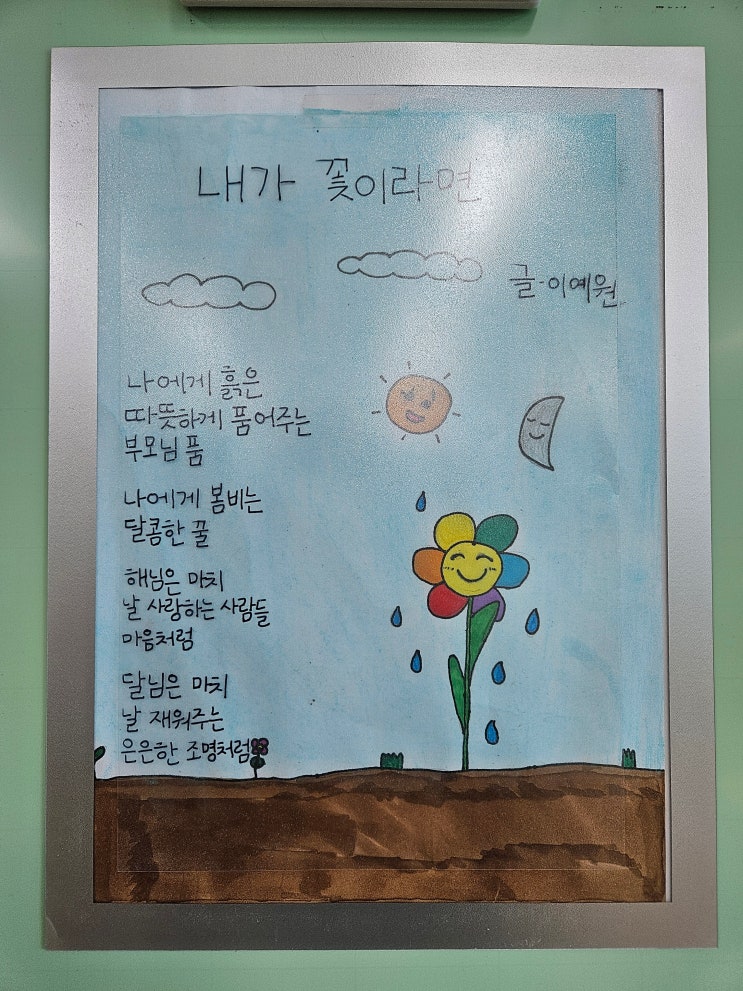 내가 꽃이라면
글-이예원
나에게 흙은
따뜻하게 품어주는
부모님 품
나에게 봄비는
달콤한 꿀
해님은 마치
날 사랑하는 사람들
마음처럼
달님은 마치
날 재워주는
은은한 조명처럼